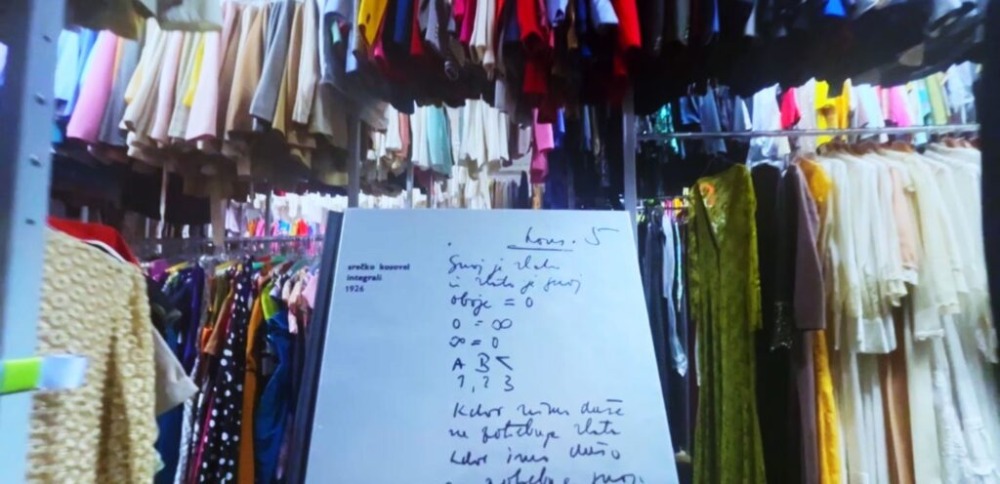 srečko kosovel
integrali
1926
Kons. 5
Gnoj je zlato
in zlato je gnoj
oboje = 0
0 = ∞
∞ = 0
A B <
1, 2 3
Kdor nima duše
ne potrebuje zlata
kdor ima dušo
potrebuje gnoj